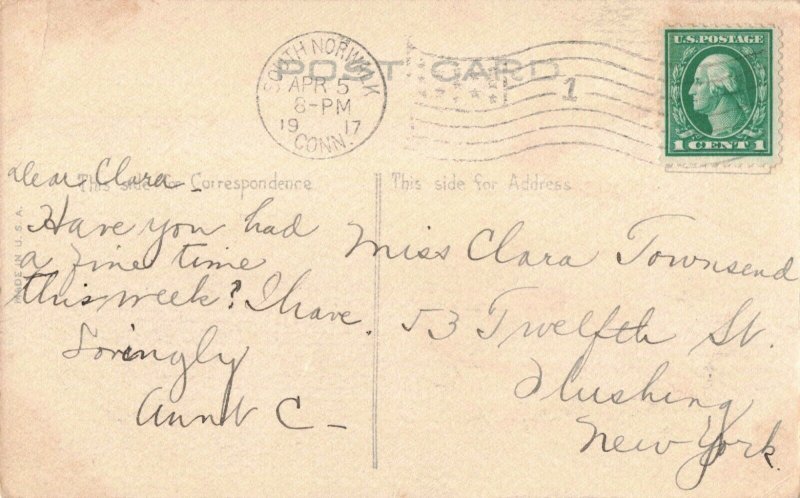 POST CARD
SOUTH NORWALK
APR 5
8-PM
19 17
CONN.
1
U.S. POSTAGE
1 CENT 1
This side for Correspondence
This side for Address
MADE IN U.S.A.
Dear Clara -
Have you had
a fine time
this week? I have.
Lovingly
Aunt C -
Miss Clara Townsend
53 Twelfth St.
Flushing
New York.